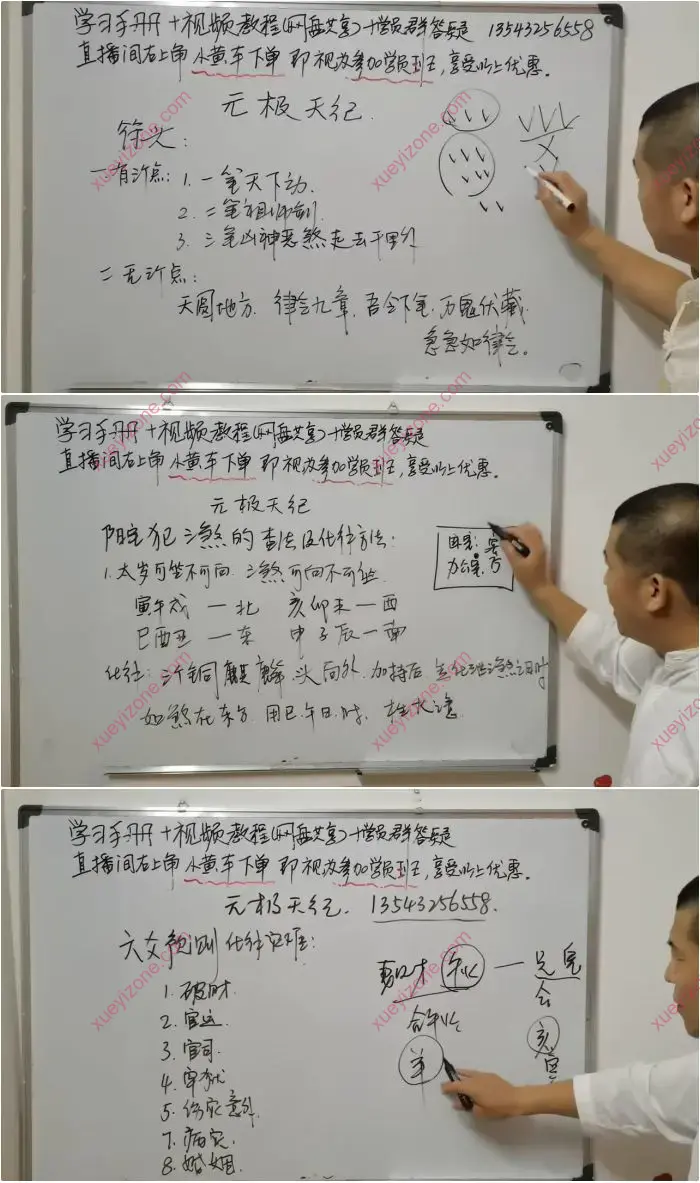 学习手册+视频教程(网盘共享)+学员群答疑 13543256558
直播间右上角 小黄车下单 即视为参加学员班,享受以上优惠。
元极天纪
符头:
一有沂点:
1. 一笔天下动.
2. 二笔祖师剑
3. 三笔凶神恶煞走去千里外
二无沂点:
天圆地方. 律令九章. 吾今下笔. 万鬼伏藏.
急急如律令。
学习手册+视频教程(网盘共享)+学员群答疑
直播间右上角 小黄车下单 即视为参加学员班,享受以上优惠。
元极天纪
阳宅犯三煞的查法及化解方法:
1.太岁可坐不可向. 三煞可向不可坐
寅午戌 — 北 亥卯未 — 西
巳酉丑 — 东 申子辰 — 南
化法: 沂铜麒麟 头向外. 加持后
如煞在东方 用巳.午日.时.
学习手册+视频教程(网盘共享)+学员群答疑
直播间右上角 小黄车下单 即视为参加学员班,享受以上优惠。
元极天纪. 13543256558.
六爻预测化解灾难:
1. 破财.
2. 官运.
3. 官司.
4. 牢狱
5. 伤灾意外.
7. 病灾.
8. 婚姻.
合
xueyizone.com
xueyizone.com
xueyizone.com
xueyizone.com
xueyizone.com
xueyizone.com
xueyizone.com
xueyizone.com
xueyizone.com